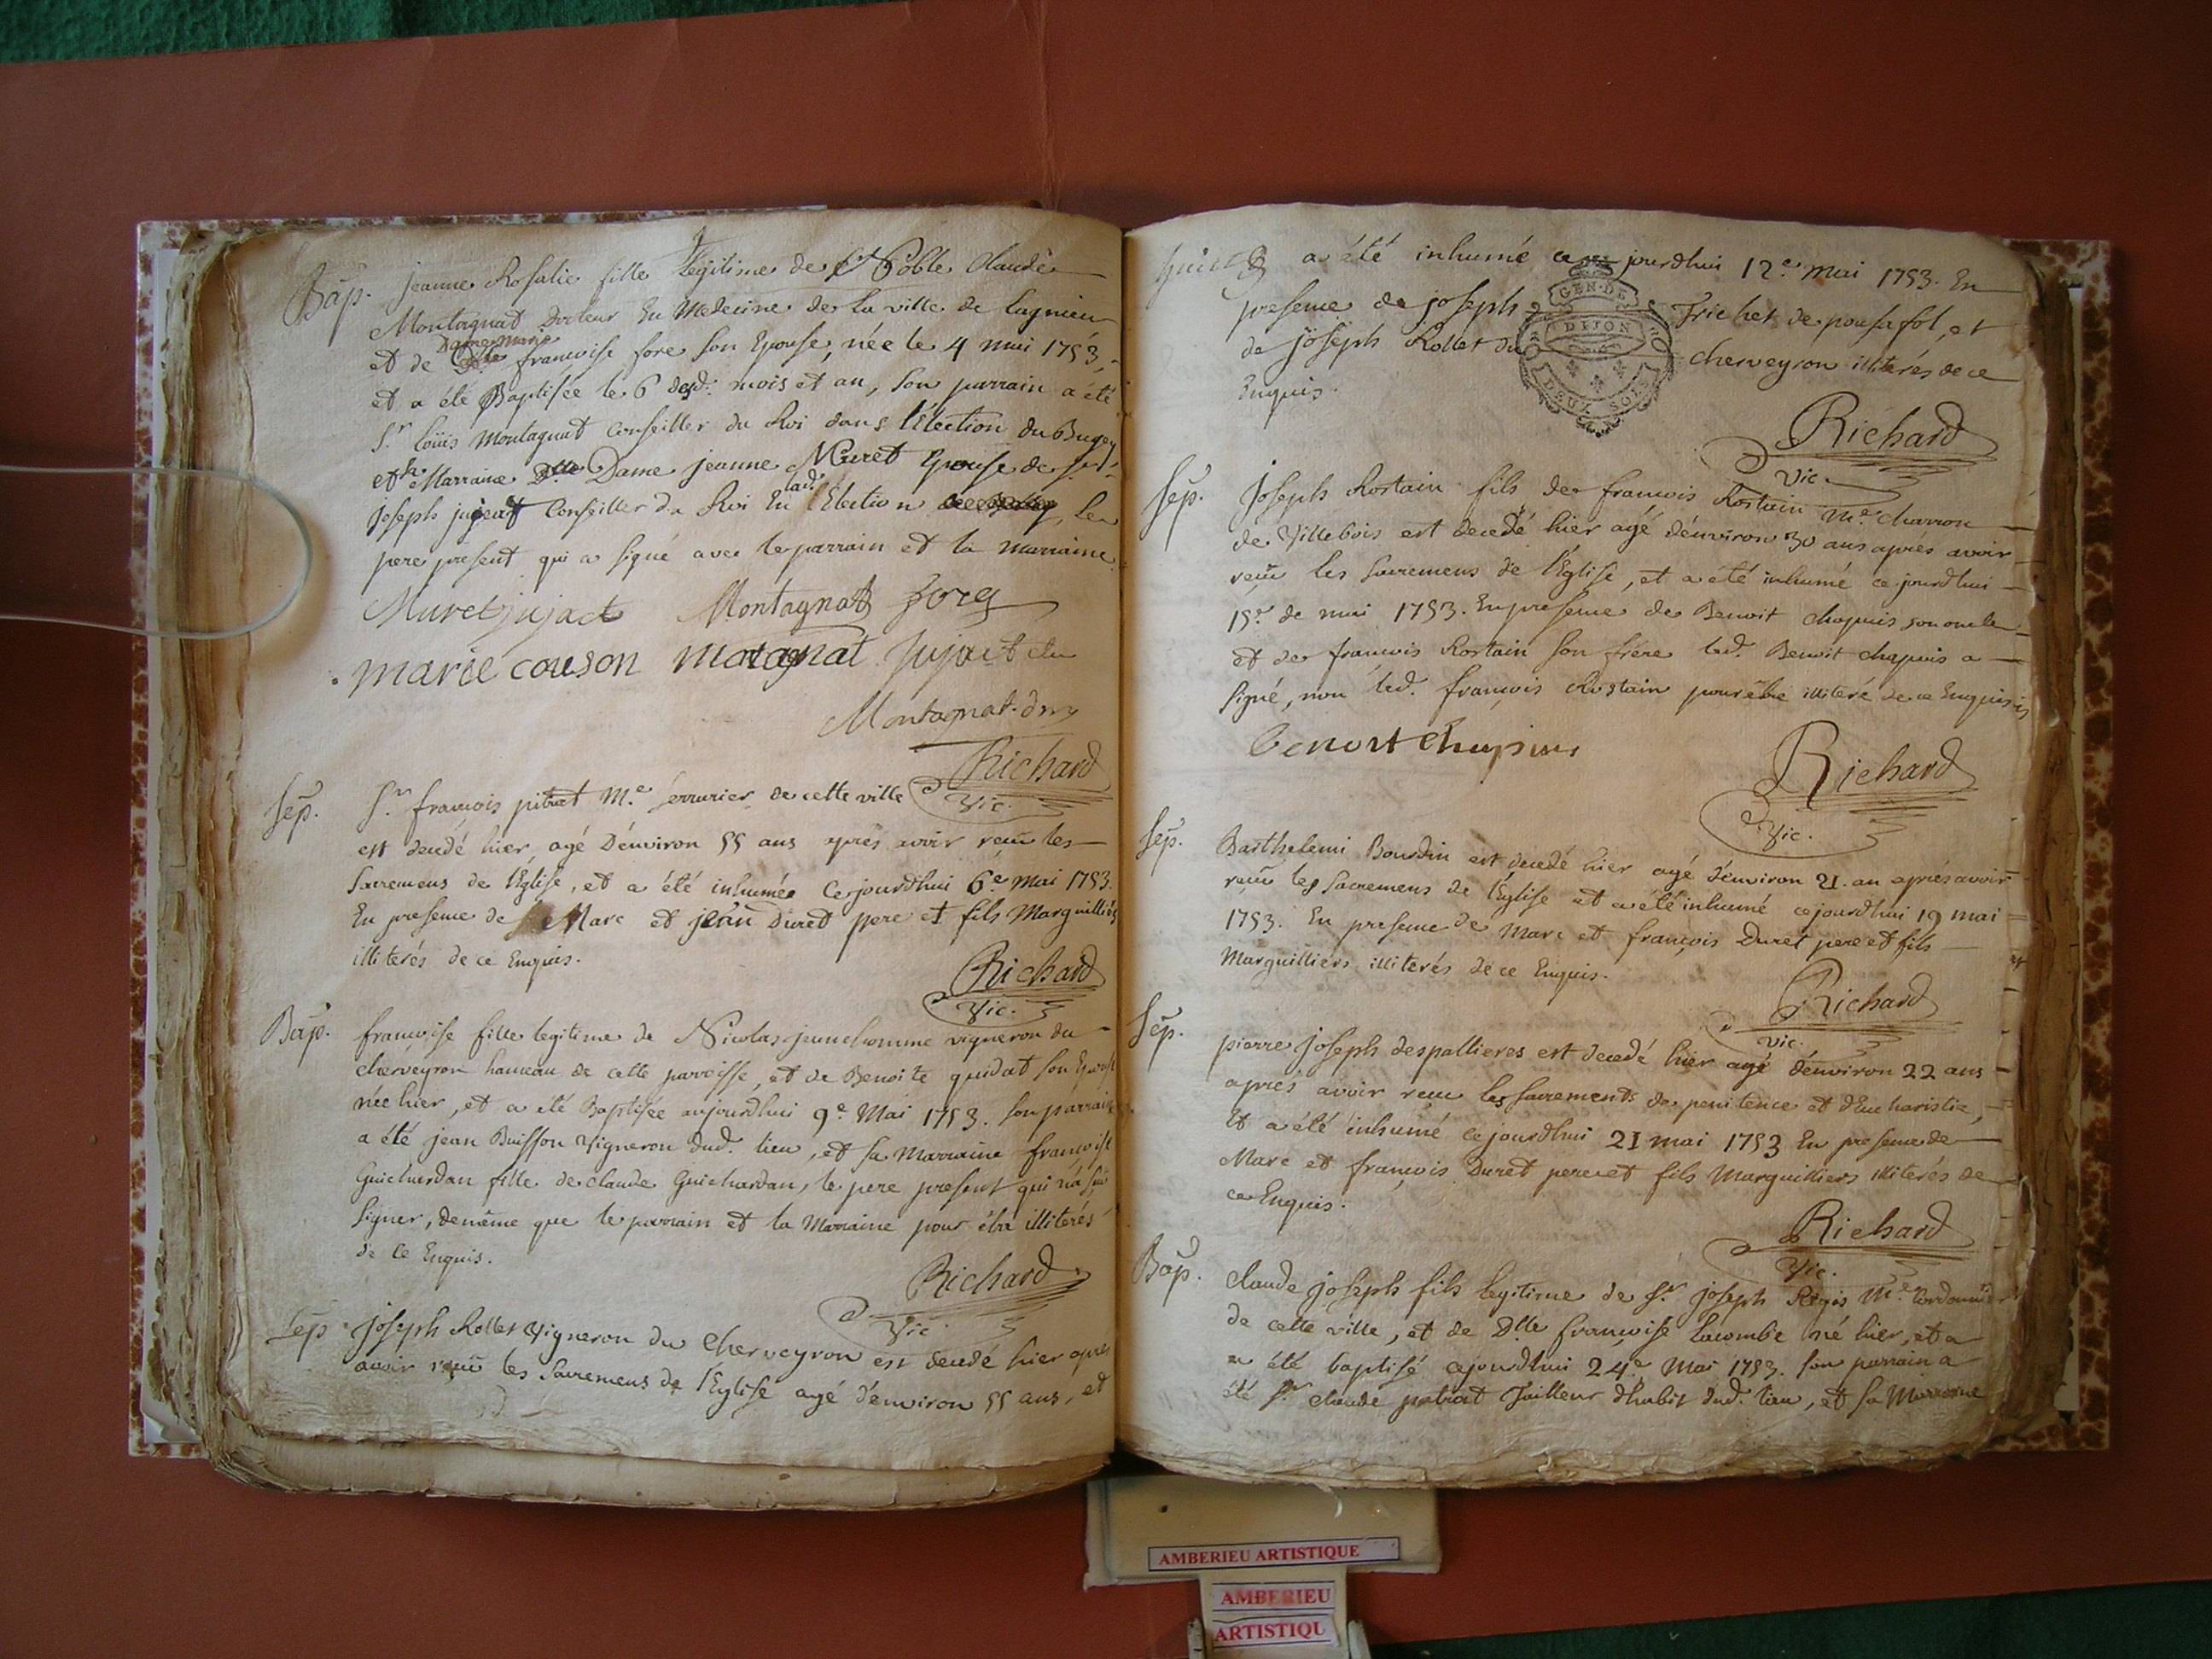 Bap. jeanne Rosalie fille legitime de Noble Claude
Montagnat Docteur En Medecine de la ville de lagnieu
Dame Marie
et de francoise fore son Epouse, née le 4 mai 1753,
et a été Baptisée le 6 dud. mois et an, son parrain a été
Sr. loüis Montagnat Conseiller du Roi dans l'Election du Bugey
et Marraine Dame jeanne Muret Epouse de Sr.
lad.
joseph jujeat Conseiller du Roi En Election le
pere present qui a signé avec le parrain et la marraine
Muret jujact Montagnat fore
marie couson motagnat jujact
Montagnat
Richard
Vic.
Sep. Sr. françois pitrat Me. serrurier de cette ville
est decedé hier, agé D'environ 55 ans aprés avoir reçu les
Sacremens de l'Eglise, et a été inhumée Cejourdhui 6e. mai 1753.
En presence de Marc et jean Duret pere et fils Marguilliés
illiterés de ce Enquis.
Richard
Vic.
Bap. francoise fille legitime de Nicolas jeunehomme vigneron du
cherveyron hameau de cette paroisse, et de Benoite guidat son Epouse
née hier, et a été Baptisée aujourdhui 9e. Mai 1753. son parrain
a été jean Buisson vigneron dud. lieu, et sa Marraine francoise
Guichardan fille de claude Guichardan, le pere present qui n'a sçu
signer, deméme que le parrain et la Marraine pour étre illiterés
de ce Enquis.
Richard
Vic.
Sep. joseph Rollet vigneron du Cherveyron est decedé hier apres
avoir reçu les Sacremens de l'Eglise agé d'environ 55 ans, et
a été inhumé ce jourdhui 12e. mai 1753. En
presence de joseph Trichet de pousafol, et
de joseph Rollet du cherveyron illiterés de ce
Enquis.
GEN. DE
DIJON
DEUX SOLS
Richard
Vic.
Sep. joseph Rostain fils de francois Rostain Me. charron
de Villebois est decedé hier agé d'environ 30 ans aprés avoir
reçu les Sacremens de l'Eglise, et a été inhumé ce jourdhui
15e. de mai 1753. En presence de Benoit chapuis son oncle
et de francois Rostain son frére led. Benoit chapuis a
signé, non led. françois Rostain pour étre illiteré de ce Enquis
benoit Chapuis
Richard
Vic.
Sep. Barthelemi Bourdin est decedé hier agé d'environ 21. an aprés avoir
reçu les Sacremens de l'Eglise et a été inhumé cejourdhui 19 mai
1753. En presence de Marc et françois Duret pere et fils
Marguilliers illiterés de ce Enquis.
Richard
Vic.
Sep. pierre joseph despallieres est decedé hier agé d'environ 22 ans
aprés avoir reçu les Sacrements de penitence et d'Eucharistie,
Et a été inhumé cejourdhui 21 mai 1753 En presence de
Marc et françois Duret pere et fils Marguilliers illiterés de
ce Enquis.
Richard
Vic.
Bap. Claude joseph fils legitime de Sr. joseph Régis Me. Cordonnier
de cette ville, et de Dlle francoise lacombe né hier, et a
été baptisé cejourdhui 24e. Mai 1753. son parrain a
été Sr. claude pitrat Tailleur d'habit dud. lieu, et sa Marraine
AMBERIEU ARTISTIQUE
AMBERIEU
ARTISTIQU